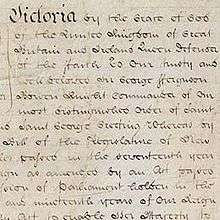 Victoria by the Grace of God
of the United Kingdom of Great
Britain and Ireland Queen Defender
of the Faith To Our trusty and
well beloved Sir George Ferguson
Bowen Knight Commander of Our
most distinguished Order of Saint
and Saint George Greeting Whereas by
of the Legislature of New
passed in the seventeenth year
as amended by an Act passed
of Parliament holden in the
and nineteenth years of Our Reign
Act to enable Her Majesty